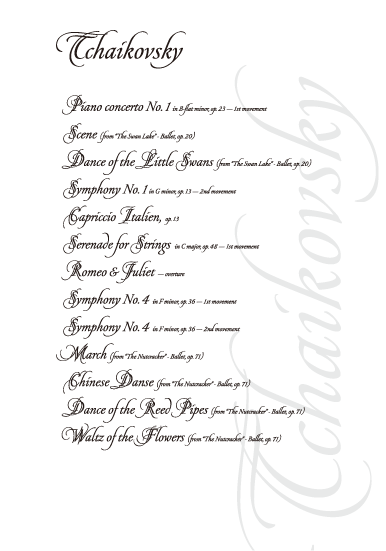 Tchaikovsky
Piano concerto No. 1 in B-flat minor, op. 23 — 1st movement
Scene (from "The Swan Lake" - Ballet, op. 20)
Dance of the Little Swans (from "The Swan Lake" - Ballet, op. 20)
Symphony No. 1 in G minor, op. 13 — 2nd movement
Capriccio Italien, op. 13
Serenade for Strings in C major, op. 48 — 1st movement
Romeo & Juliet — overture
Symphony No. 4 in F minor, op. 36 — 1st movement
Symphony No. 4 in F minor, op. 36 — 2nd movement
March (from "The Nutcracker" - Ballet, op. 71)
Chinese Danse (from "The Nutcracker" - Ballet, op. 71)
Dance of the Reed Pipes (from "The Nutcracker" - Ballet, op. 71)
Waltz of the Flowers (from "The Nutcracker" - Ballet, op. 71)
Tchaikovsky